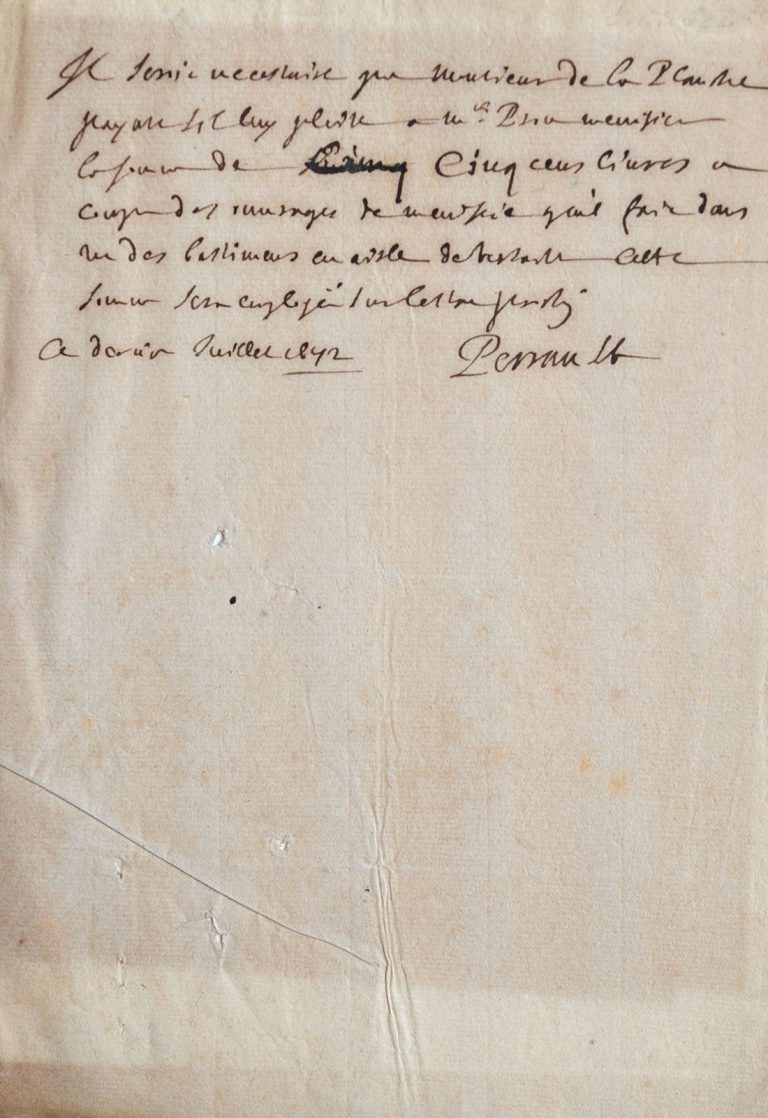 Il seroit necessaire que Monsieur de la Planche
payast s'il luy plaist a mr. menuisier
la somme de Cinq cens livres a
compte des ouvrages de menuiserie qu'il fait dans
un des bastimens en aisle de cette
somme sera employée sur l'estat
Ce dernier Juillet 1672 Perrault